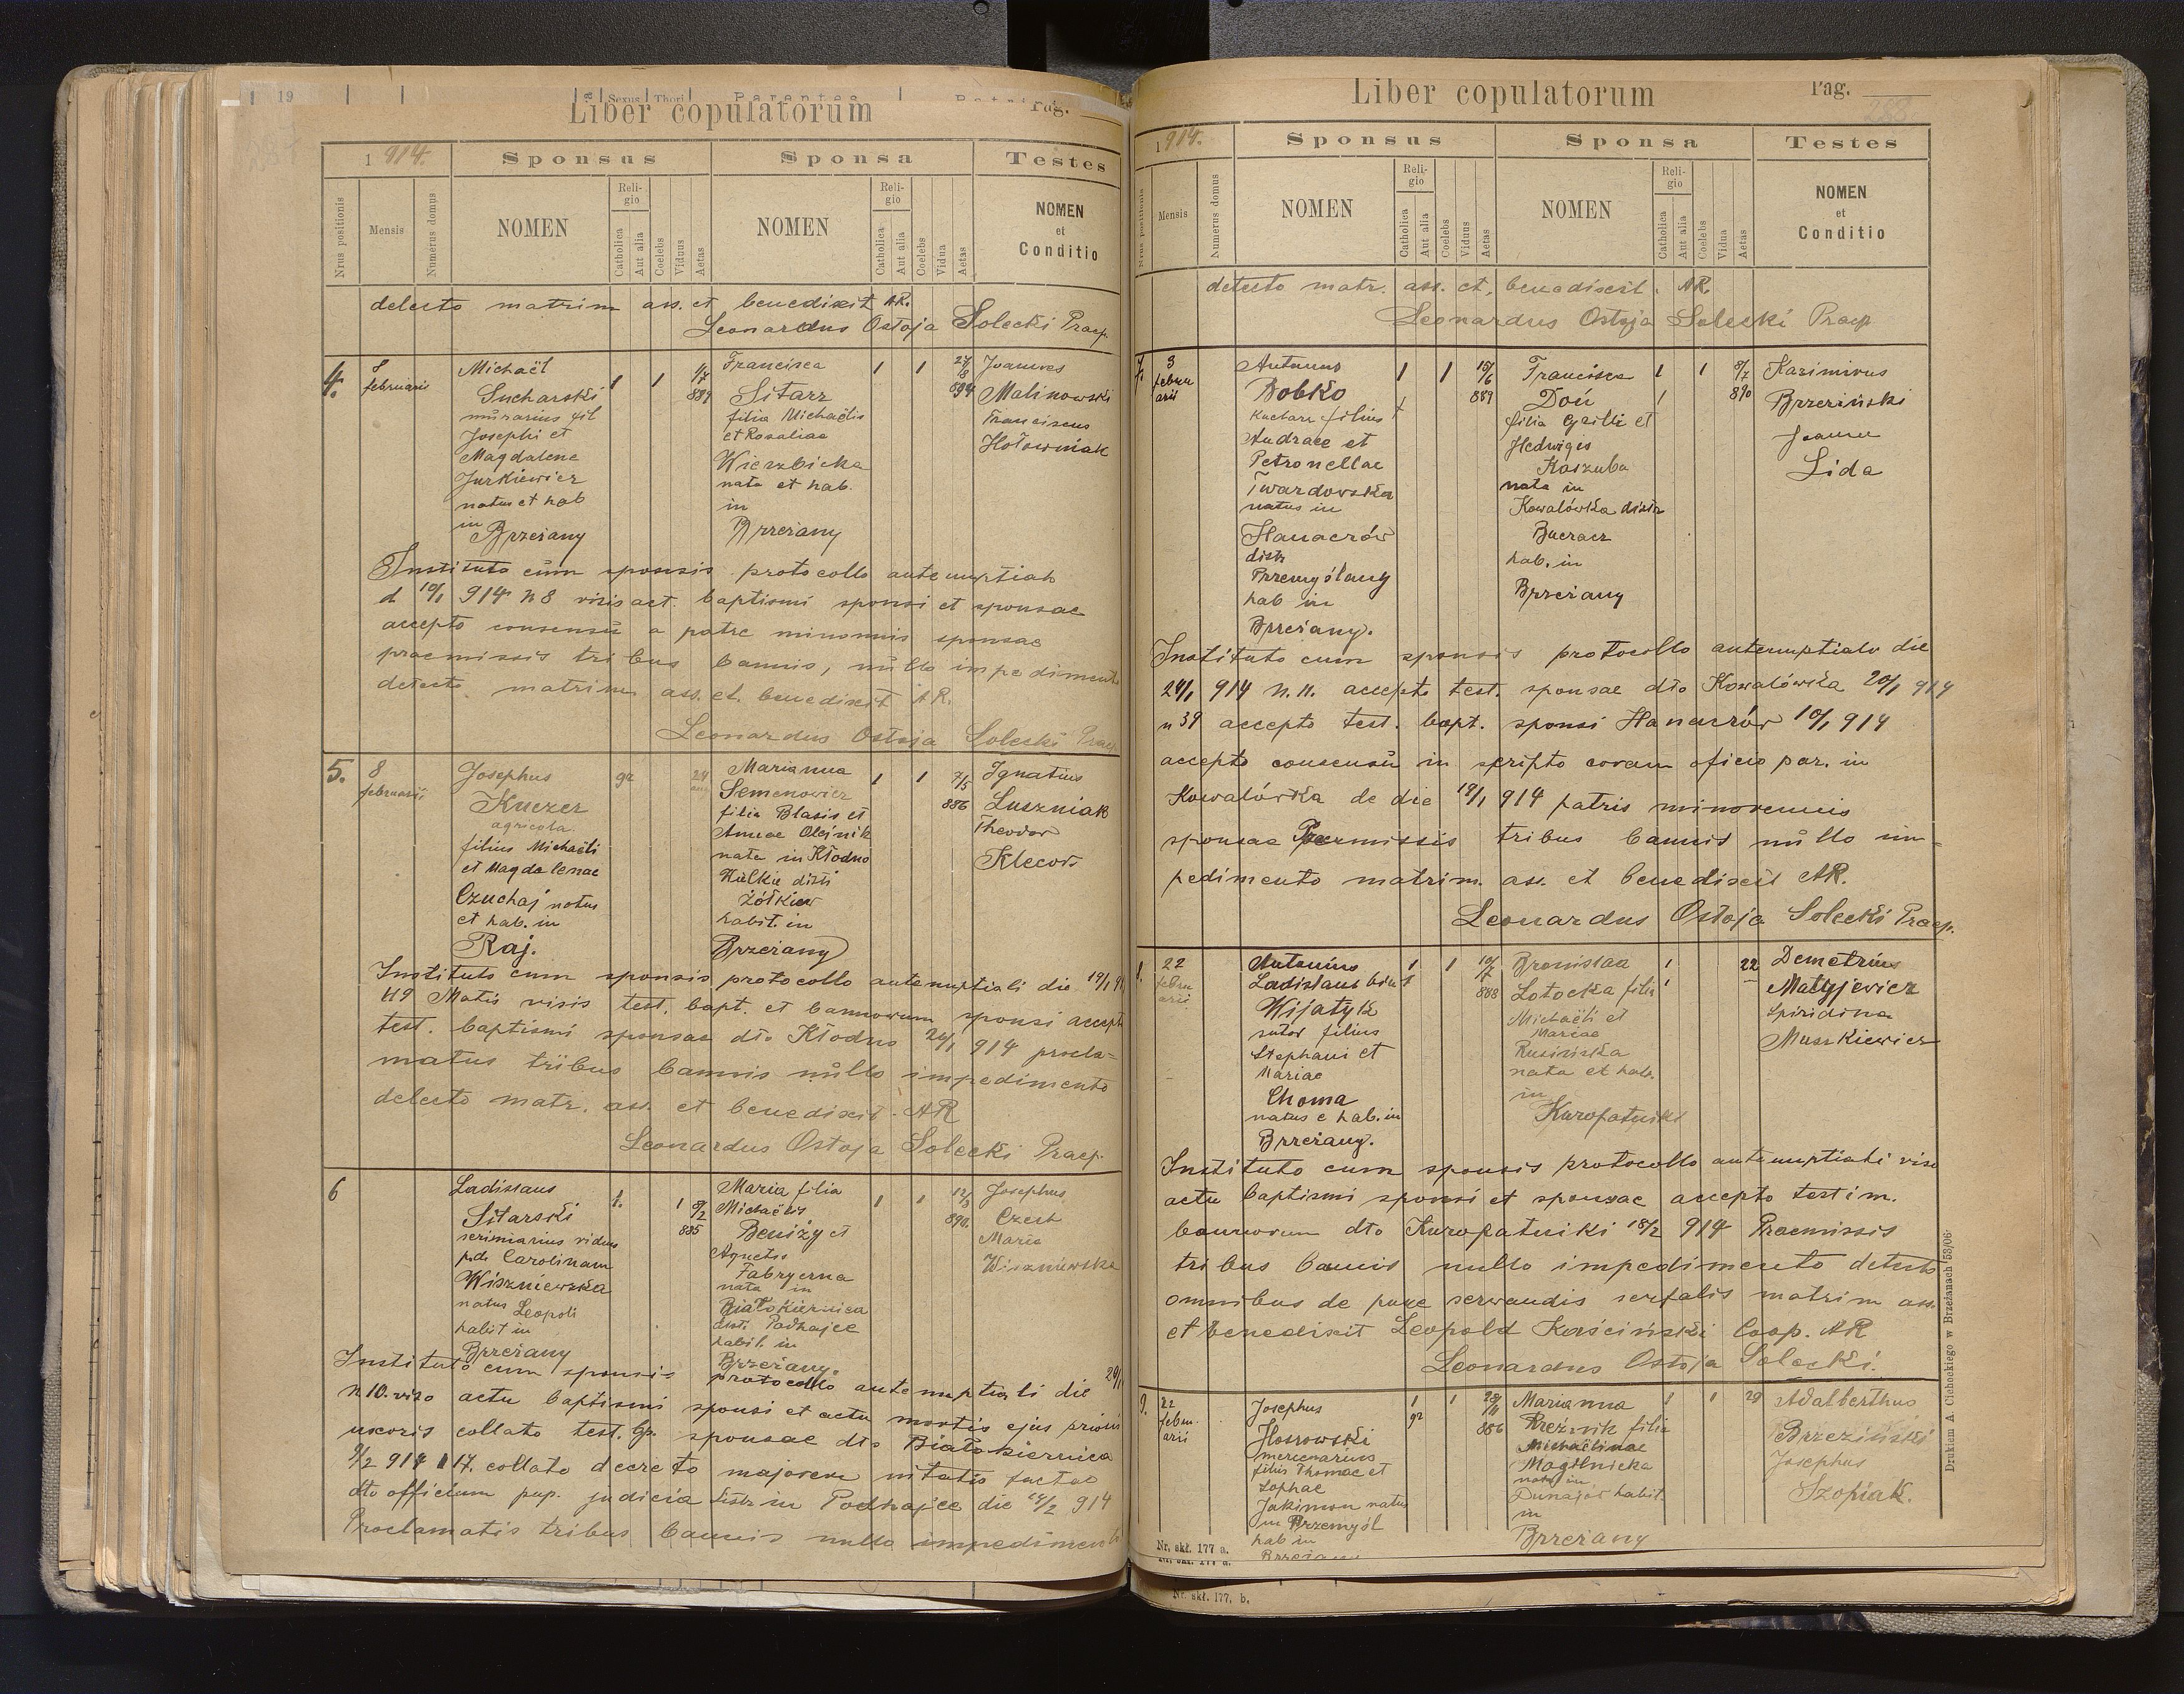 Liber copulatorum
Pag.
1914.
Sponsus
Sponsa
Testes
Nrus positionis
Mensis
Numerus domus
NOMEN
Religio
Catholica
Aut alia
Coelebs
Viduus
Aetas
NOMEN
Religio
Catholica
Aut alia
Coelebs
Vidua
Aetas
NOMEN
et
Conditio
detecto matrim ass. et benedixit AR.
Leonardus Ostoja Solecki Praep.
4.
februarii
Michaël
Sucharski
murarius fil
Josephi et
Magdalene
Jurkiewicz
natus et hab
in
Brzeżany
1 1
1/7
889
Francisca
Sitarz
filia Michaëlis
et Rosaliae
Wierzbicka
nata et hab.
in
Brzeżany
1 1
894
Joannes
Malinowski
Franciscus
Hołowniak
Instituto cum sponsis protocollo antenuptiali
d 10/1 914 n 8 visis act. baptismi sponsi et sponsae
accepto consensu a patre minorennis sponsae
praemissis tribus bannis, nullo impedimento
detecto matrim ass. et benedixit AR.
Leonardus Ostoja Solecki Praep
5.
8
februarii
Josephus
Kuczer
agricola
filius Michaëli
et Magdalenae
Czuchaj natus
et hab. in
Raj.
gr
24
Marianna
Semenowicz
filia Blasis et
Annae Olejnik
nata in Kłodno
distr
Żółkiew
habit. in
Brzeżany
1 1
7/5
886
Ignatius
Luszniak
Theodor
Klecor
Instituto cum sponsis protocollo antenuptiali die 19/1
visis test. bapt. et bannorum sponsi accepto
test. baptismi sponsae dto Kłodno 20/1 914 procla=
matus tribus bannis nullo impedimento
detecto matr. ass. et benedixit AR
Leonardus Ostoja Solecki Praep.
6
Ladislaus
Sitarski
scriniarius viduus
p.d. Carolinam
Wiszniewska
natus Leopoli
habit in
Brzeżany
1.
1 8/2
885
Maria filia
Michaëlis
Beniży et
Agnetis
Fabryczna
nata in
Białokiernica
distr. Podhajce
habit. in
Brzeżany.
1 1
12/3
890.
Josephus
Czech
Maria
Wiszniewska
Instituto cum sponsis protocollo antenuptiali die 20/1
n 10. viso actu baptismi sponsi et actu mortis ejus prioris
uxoris collato test. bp. sponsae dto Białokiernica
9/2 914 17. collato decreto majorem nitatis factae
dto officium pup. judicia distr in Podhajce die 14/2 914
Proclamatis tribus bannis nullo impedimento
Liber copulatorum
Pag.
268
1914.
Sponsus
Sponsa
Testes
Nrus positionis
Mensis
Numerus domus
NOMEN
Religio
Catholica
Aut alia
Coelebs
Viduus
Aetas
NOMEN
Religio
Catholica
Aut alia
Coelebs
Vidua
Aetas
NOMEN
et
Conditio
detecto matr. ass. et. benedixit. AR.
Leonardus Ostoja Solecki Praep
7.
3
febru
arii
Antonus
Bobko
Kuchar filius
Andreae et
Petronellae
Twardowska
natus in
Hanaczów
distr
Przemyślany
hab in
Brzeżany.
1 1
15/6
889
Francisca
Doń
filia Cyrilli et
Hedwigis
Kaszuba
nata in
Kowalówka distr
Buczacz
hab. in
Brzeżany
1 1
8/7
890
Kazimirus
Brzeziński
Joannes
Lida
Instituto cum sponsis protocollo antenuptiali die
24/1 914 n. 11. accepto test. sponsae dto Kowalówka 20/1 914
n 39 accepto test. bapt. sponsi Hanaczów 10/1 914
accepto consensu in scripto coram oficio par. in
Kowalówka de die 19/1 914 patris minorennis
sponsae Praemissis tribus bannis nullo im=
pedimento matrim. ass. et benedixit AR.
Leonardus Ostoja Solecki Praep.
22
febru
arii
Antonius
Ladislaus
Wijatyk
sutor filius
Stephani et
Mariae
Choma
natus e hab. in
Brzeżany.
1 1
10/7
888
Bronislaa
Lotocka filia
Michaëli et
Mariae
Rusińska
nata et hab.
in
Kuropatniki
1
22
Demetrius
Matyjewicz
Spiridina
Muszkiewicz
Instituto cum sponsis protocollo antenuptiali viso
actu baptismi sponsi et sponsae accepto testim.
bannorum dto Kuropatniki 18/2 914 Praemissis
tribus bannis nullo impedimento detecto
omnibus de jure servandis servatis matrim ass.
et benedixit Leopold Kościński Coop. AR
Leonardus Ostoja Solecki.
9.
22
febru
arii
Josephus
Hossowski
mercenarius
filius Thomae et
Sophae
Jakimow natus
in Przemyśl
hab in
Brzeżany
1
gr
1
28/11
886
Marianna
Kreźnik filia
Michaëlinae
Magilnicka
nata in
Dunajów habit.
in
Brzeżany
1 1
29
Adalberthus
Brzeziński
Josephus
Szopiak.
Drukiem A. Cichockiego w Brzeżanach 53/06
Nr. skł. 177 a.
Nr. skł. 177. b.